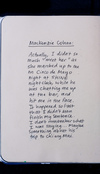 Mackenzie Colman:
Actually, I didn't so
much "meet her" as
she marched up to me
in Circo de Mayo
night at Salsa's
nightclub while he
was chatting me up
at the bar, and
hit me in the face.
It happened so fast
even I didn't know
from my sentence.
I don't remember what
I was saying. Maybe
something about his
trip to Chicago.